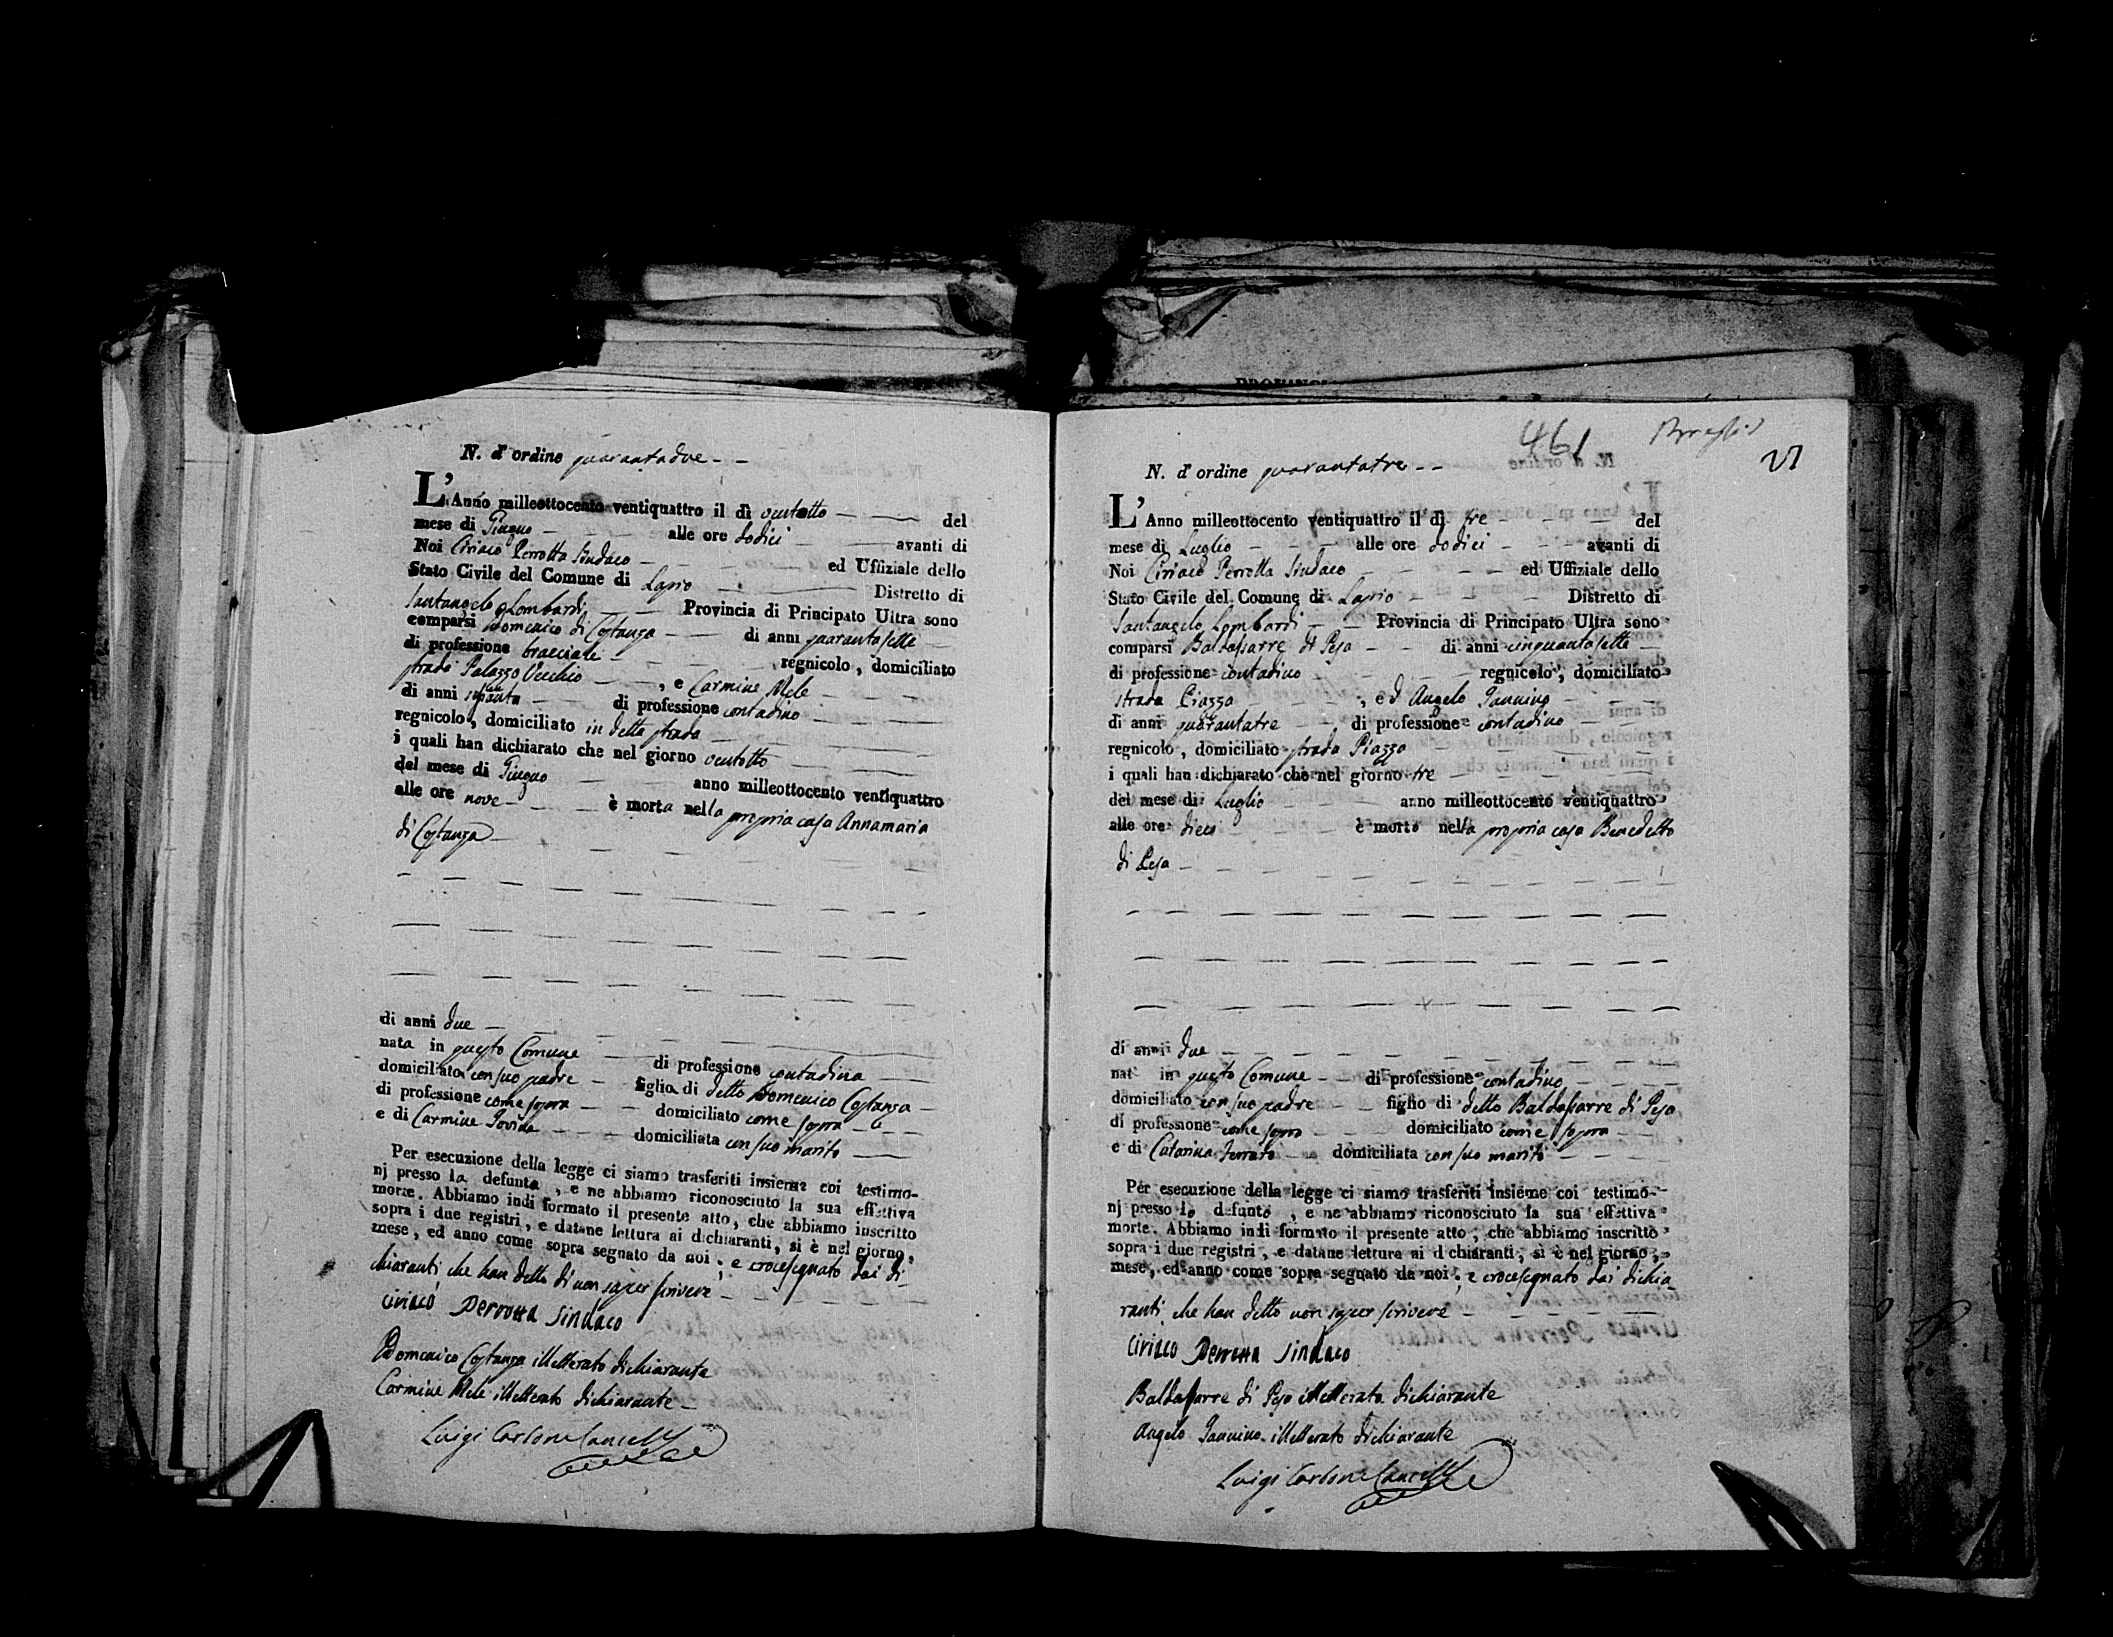 N. d' ordine quarantadue
L' Anno milleottocento ventiquattro il dì ventotto del
mese di Giugno alle ore dodici avanti di
Noi Ciriaco Perrotta Sindaco ed Uffiziale dello
Stato Civile del Comune di Lapio Distretto di
Santangelo Lombardi Provincia di Principato Ultra sono
comparsi Domenico di Costanza di anni quarantasette
di professione bracciale regnicolo, domiciliato
strada Palazzo Vecchio , e Carmine Mele
di anni di professione contadino
regnicolo, domiciliato in detta strada
i quali han dichiarato che nel giorno ventotto
del mese di Giugno anno milleottocento ventiquattro
alle ore nove è morta nella propria casa Annamaria
di Costanza
di anni due
nata in questo Comune di professione contadina
domiciliata con suo padre figlia di detto Domenico Costanza
di professione come sopra domiciliato come sopra
e di Carmine Iovine domiciliata con suo marito
Per esecuzione della legge ci siamo trasferiti insieme coi testimo-
nj presso la defunta, e ne abbiamo riconosciuto la sua effettiva
morte. Abbiamo indi formato il presente atto, che abbiamo inscritto
sopra i due registri, e datane lettura ai dichiaranti, si è nel giorno,
mese, ed anno come sopra segnato da noi; e crocesegnato dai di-
chiaranti che han detto di non saper scrivere
Ciriaco Perrotta Sindaco
Domenico Costanza illetterato dichiarante
Carmine Mele illetterato dichiarante
Luigi Carbone Cancell
461
21
N. d' ordine quarantatre
L' Anno milleottocento ventiquattro il dì tre del
mese di Luglio alle ore dodici avanti di
Noi Ciriaco Perrotta Sindaco ed Uffiziale dello
Stato Civile del Comune di Lapio Distretto di
Santangelo Lombardi Provincia di Principato Ultra sono
comparsi Baldassarre di Peso di anni cinquantasette
di professione contadino regnicolo, domiciliato
strada Piazza , ed Angelo Iannino
di anni quarantatre di professione contadino
regnicolo, domiciliato strada Piazza
i quali han dichiarato che nel giorno tre
del mese di Luglio anno milleottocento ventiquattro
alle ore dieci è morto nella propria casa Benedetto
di Peso
di anni due
nat in questo Comune di professione contadino
domiciliato con suo padre figlio di detto Baldassarre di Peso
di professione come sopra domiciliato come sopra
e di Catarina Ferrara domiciliata con suo marito
Per esecuzione della legge ci siamo trasferiti insieme coi testimo-
nj presso lo defunto, e ne abbiamo riconosciuto la sua effettiva
morte. Abbiamo indi formato il presente atto, che abbiamo inscritto
sopra i due registri, e datane lettura ai dichiaranti, si è nel giorno,
mese, ed anno come sopra segnato da noi; e crocesegnato dai dichia-
ranti che han detto non saper scrivere
Ciriaco Perrotta Sindaco
Baldassarre di Peso illetterato dichiarante
Angelo Iannino illetterato dichiarante
Luigi Carbone Cancell